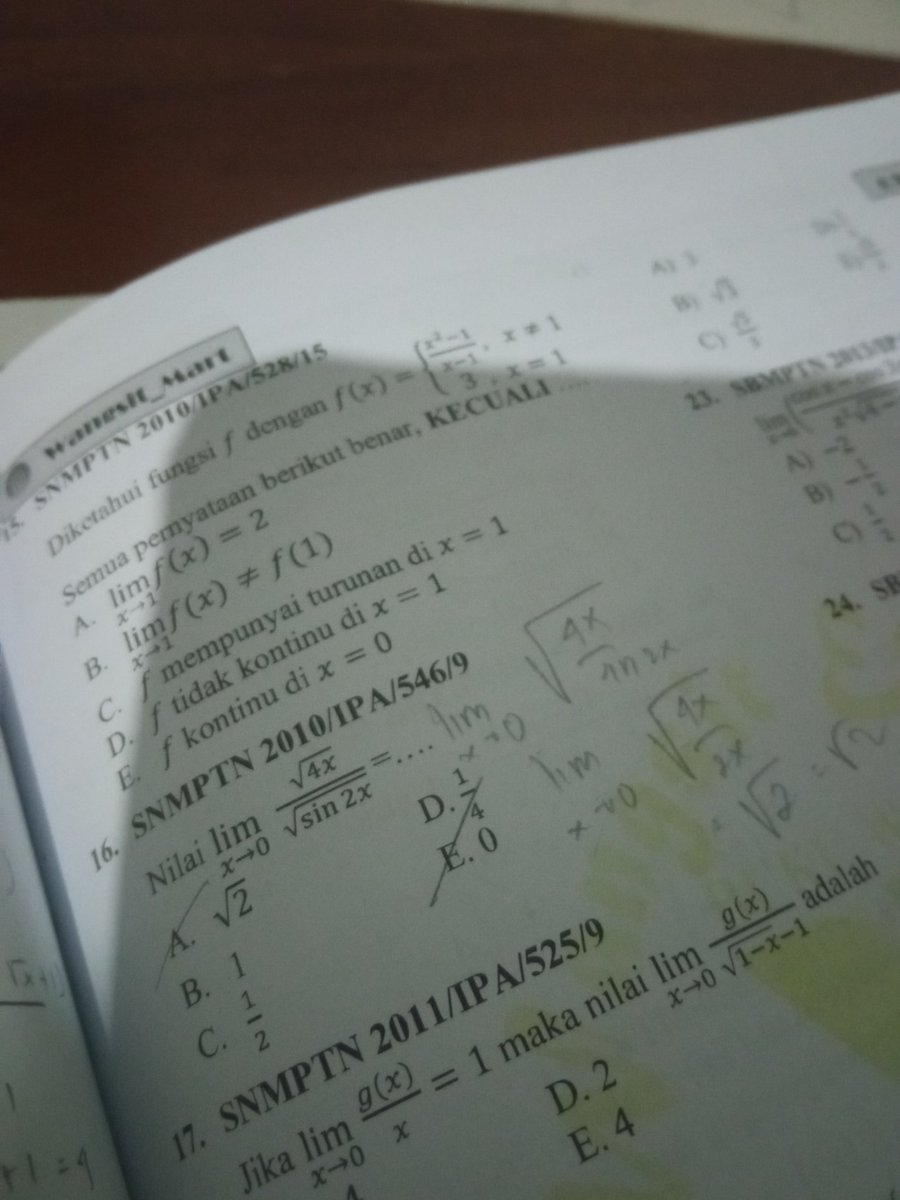 Wangsit_Mart
15. SNMPTN 2010/IPA/528/15
Diketahui fungsi f dengan f(x) = { x²−1 / x−1 , x ≠ 1
3 , x = 1
Semua pernyataan berikut benar, KECUALI ....
A. lim x→1 f(x) = 2
B. lim x→1 f(x) ≠ f(1)
C. f mempunyai turunan di x = 1
D. f tidak kontinu di x = 1
E. f kontinu di x = 0
16. SNMPTN 2010/IPA/546/9
Nilai lim x→0 √4x / √sin 2x =....
A. √2
B. 1
C. 1/2
D. 1/4
E. 0
lim x→0 √4x / sin 2x
lim x→0 √4x / 2x
= √2 = √2
17. SNMPTN 2011/IPA/525/9
Jika lim x→0 g(x)/x = 1 maka nilai lim x→0 g(x) / √1−x−1 adalah
D. 2
E. 4
A) 3
B) √3
C)
23. SBMPTN 2013/IP
A) −2
B)
C)
24. SB
√x+1
+1 = 4